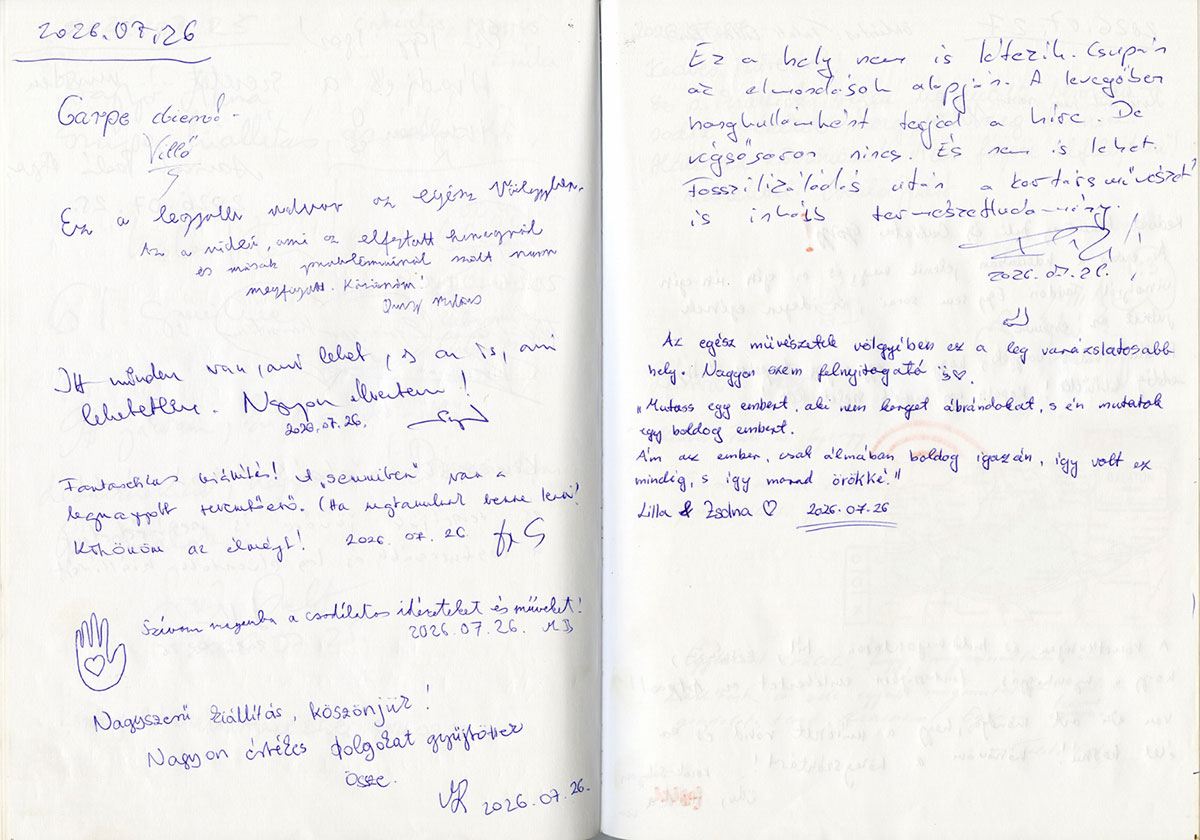 2026.07.26
Carpe diem!
Villő
Ez a legjobb udvar az egész Völgyben.
Az a videó, ami az elfojtott haragról
és mások problémáiról szólt nagyon
megfogott. Köszönöm!
Itt minden van, ami lehet, s az is, ami
lehetetlen. Nagyon élveztem!
2026.07.26.
Fantasztikus kiállítás! A „semmiben” van a
legnagyobb teremtőerő. (Ha megtanulunk benne lenni!
Köszönöm az élményt! 2026.07.26
Szívom magamba a csodálatos idézeteket és műveket!
2026.07.26. MB
Nagyszerű kiállítás, köszönjük!
Nagyon értékes dolgokat gyűjtöttek
össze.
2026.07.26.
Ez a hely nem is létezik. Csupán
az elmondások alapján. A levegőben
hanghullámként terjed a híre. De
végsősoron nincs. És nem is lehet.
Fosszilizálódás után a kortárs művészet
is inkább természettudomány.
2026.07.26.
Az egész művészetek völgyében ez a leg varázslatosabb
hely. Nagyon szem felnyitogató
„Mutass egy embert, aki nem kerget ábrándokat, s én mutatok
egy boldog embert.
Ám az ember, csak álmában boldog igazán, így volt ez
mindig, s így marad örökké!”
Lilla & Zsolna ♡ 2026.07.26